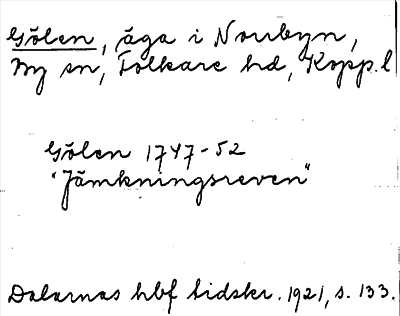 Gölen, äga i Norrbyn,
By sn, Folkare hd, Kopp. l
Gölen 1747-52
"Jämkningsreven"
Dalarnas hbf tidskr. 1921, s. 133.